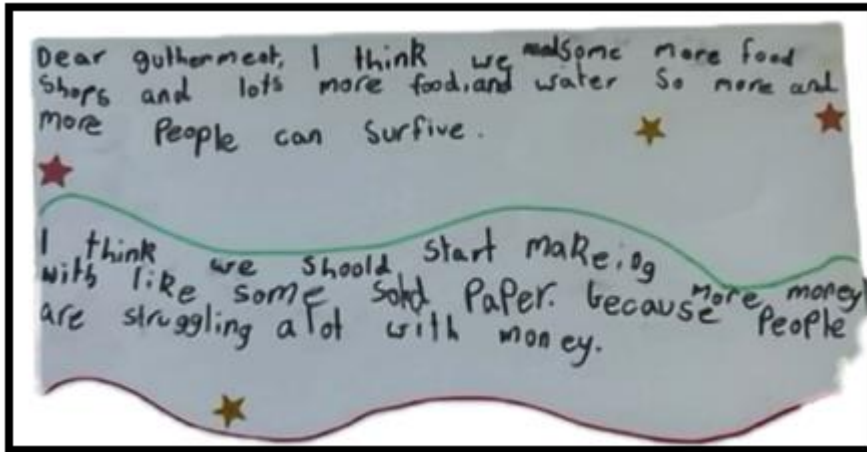 Dear guthermeat, I think we some more food
Shops and lots more food, and water So more and
more People can Surfive.
I think we shoold start makeing more money
with like some solid PaPer. because People
are struggling alot with money.